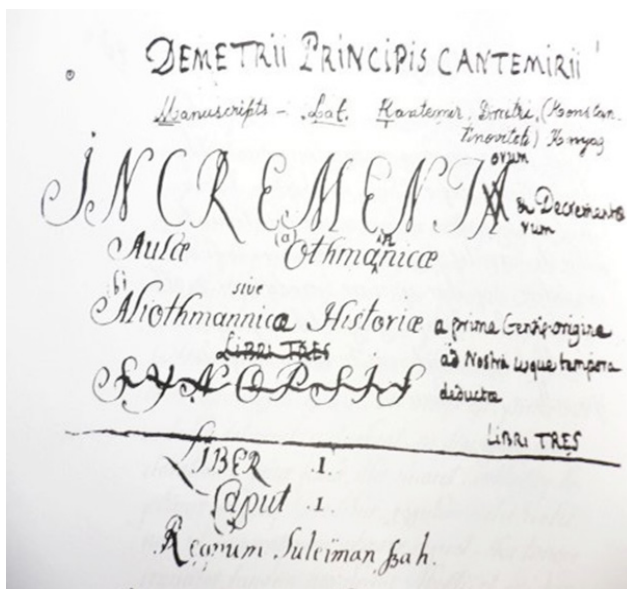 DEMETRII PRINCIPIS CANTEMIRII
Manuscripts – Lat. Kantemir, Dmitri, (Konstan-
tinovitch) Knyaz
INCREMENTA orum et Decrementorum
Aulæ (a) Othmanicæ
(b) sive
Aliothmannicæ Historiæ a prima Gentis origine
LIBRI TRES ad Nostra usque tempora
SYNOPSIS deductæ
LIBRI TRES
LIBER .1.
Caput .1.
Regnum Suleiman Szah.